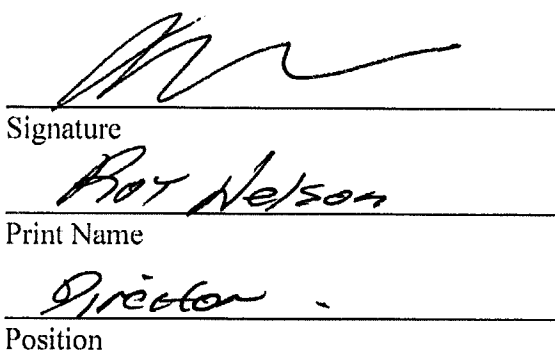 Signature
Roy Nelson
Print Name
Director
Position